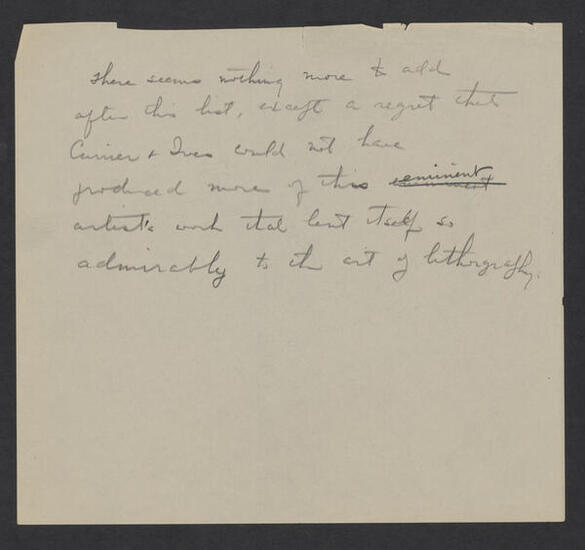 There seems nothing more to add
after this list, except a regret that
Currier & Ives could not have
produced more of this eminent
artist's work that lent itself so
admirably to the art of lithography.